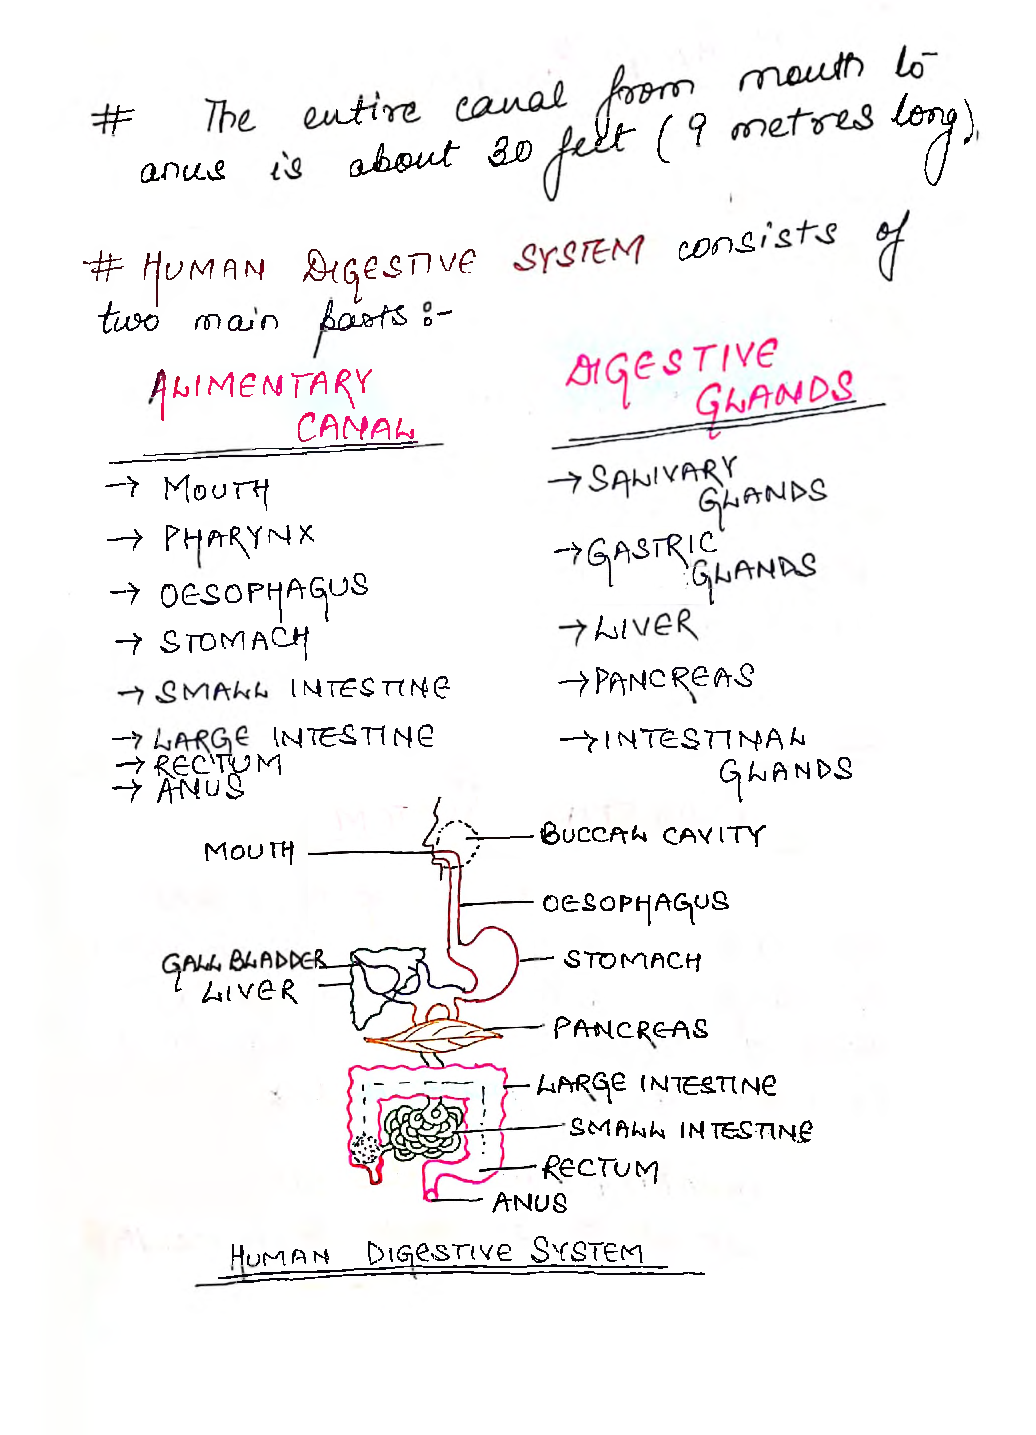 # The entire canal from mouth to
anus is about 30 feet (9 metres long).
# HUMAN DIGESTIVE SYSTEM consists of
two main parts :-
ALIMENTARY
CANAL
→ MOUTH
→ PHARYNX
→ OESOPHAGUS
→ STOMACH
→ SMALL INTESTINE
→ LARGE INTESTINE
→ RECTUM
→ ANUS
DIGESTIVE
GLANDS
→ SALIVARY
GLANDS
→ GASTRIC
GLANDS
→ LIVER
→ PANCREAS
→ INTESTINAL
GLANDS
BUCCAL CAVITY
MOUTH
OESOPHAGUS
GALL BLADDER
STOMACH
LIVER
PANCREAS
LARGE INTESTINE
SMALL INTESTINE
RECTUM
ANUS
HUMAN DIGESTIVE SYSTEM